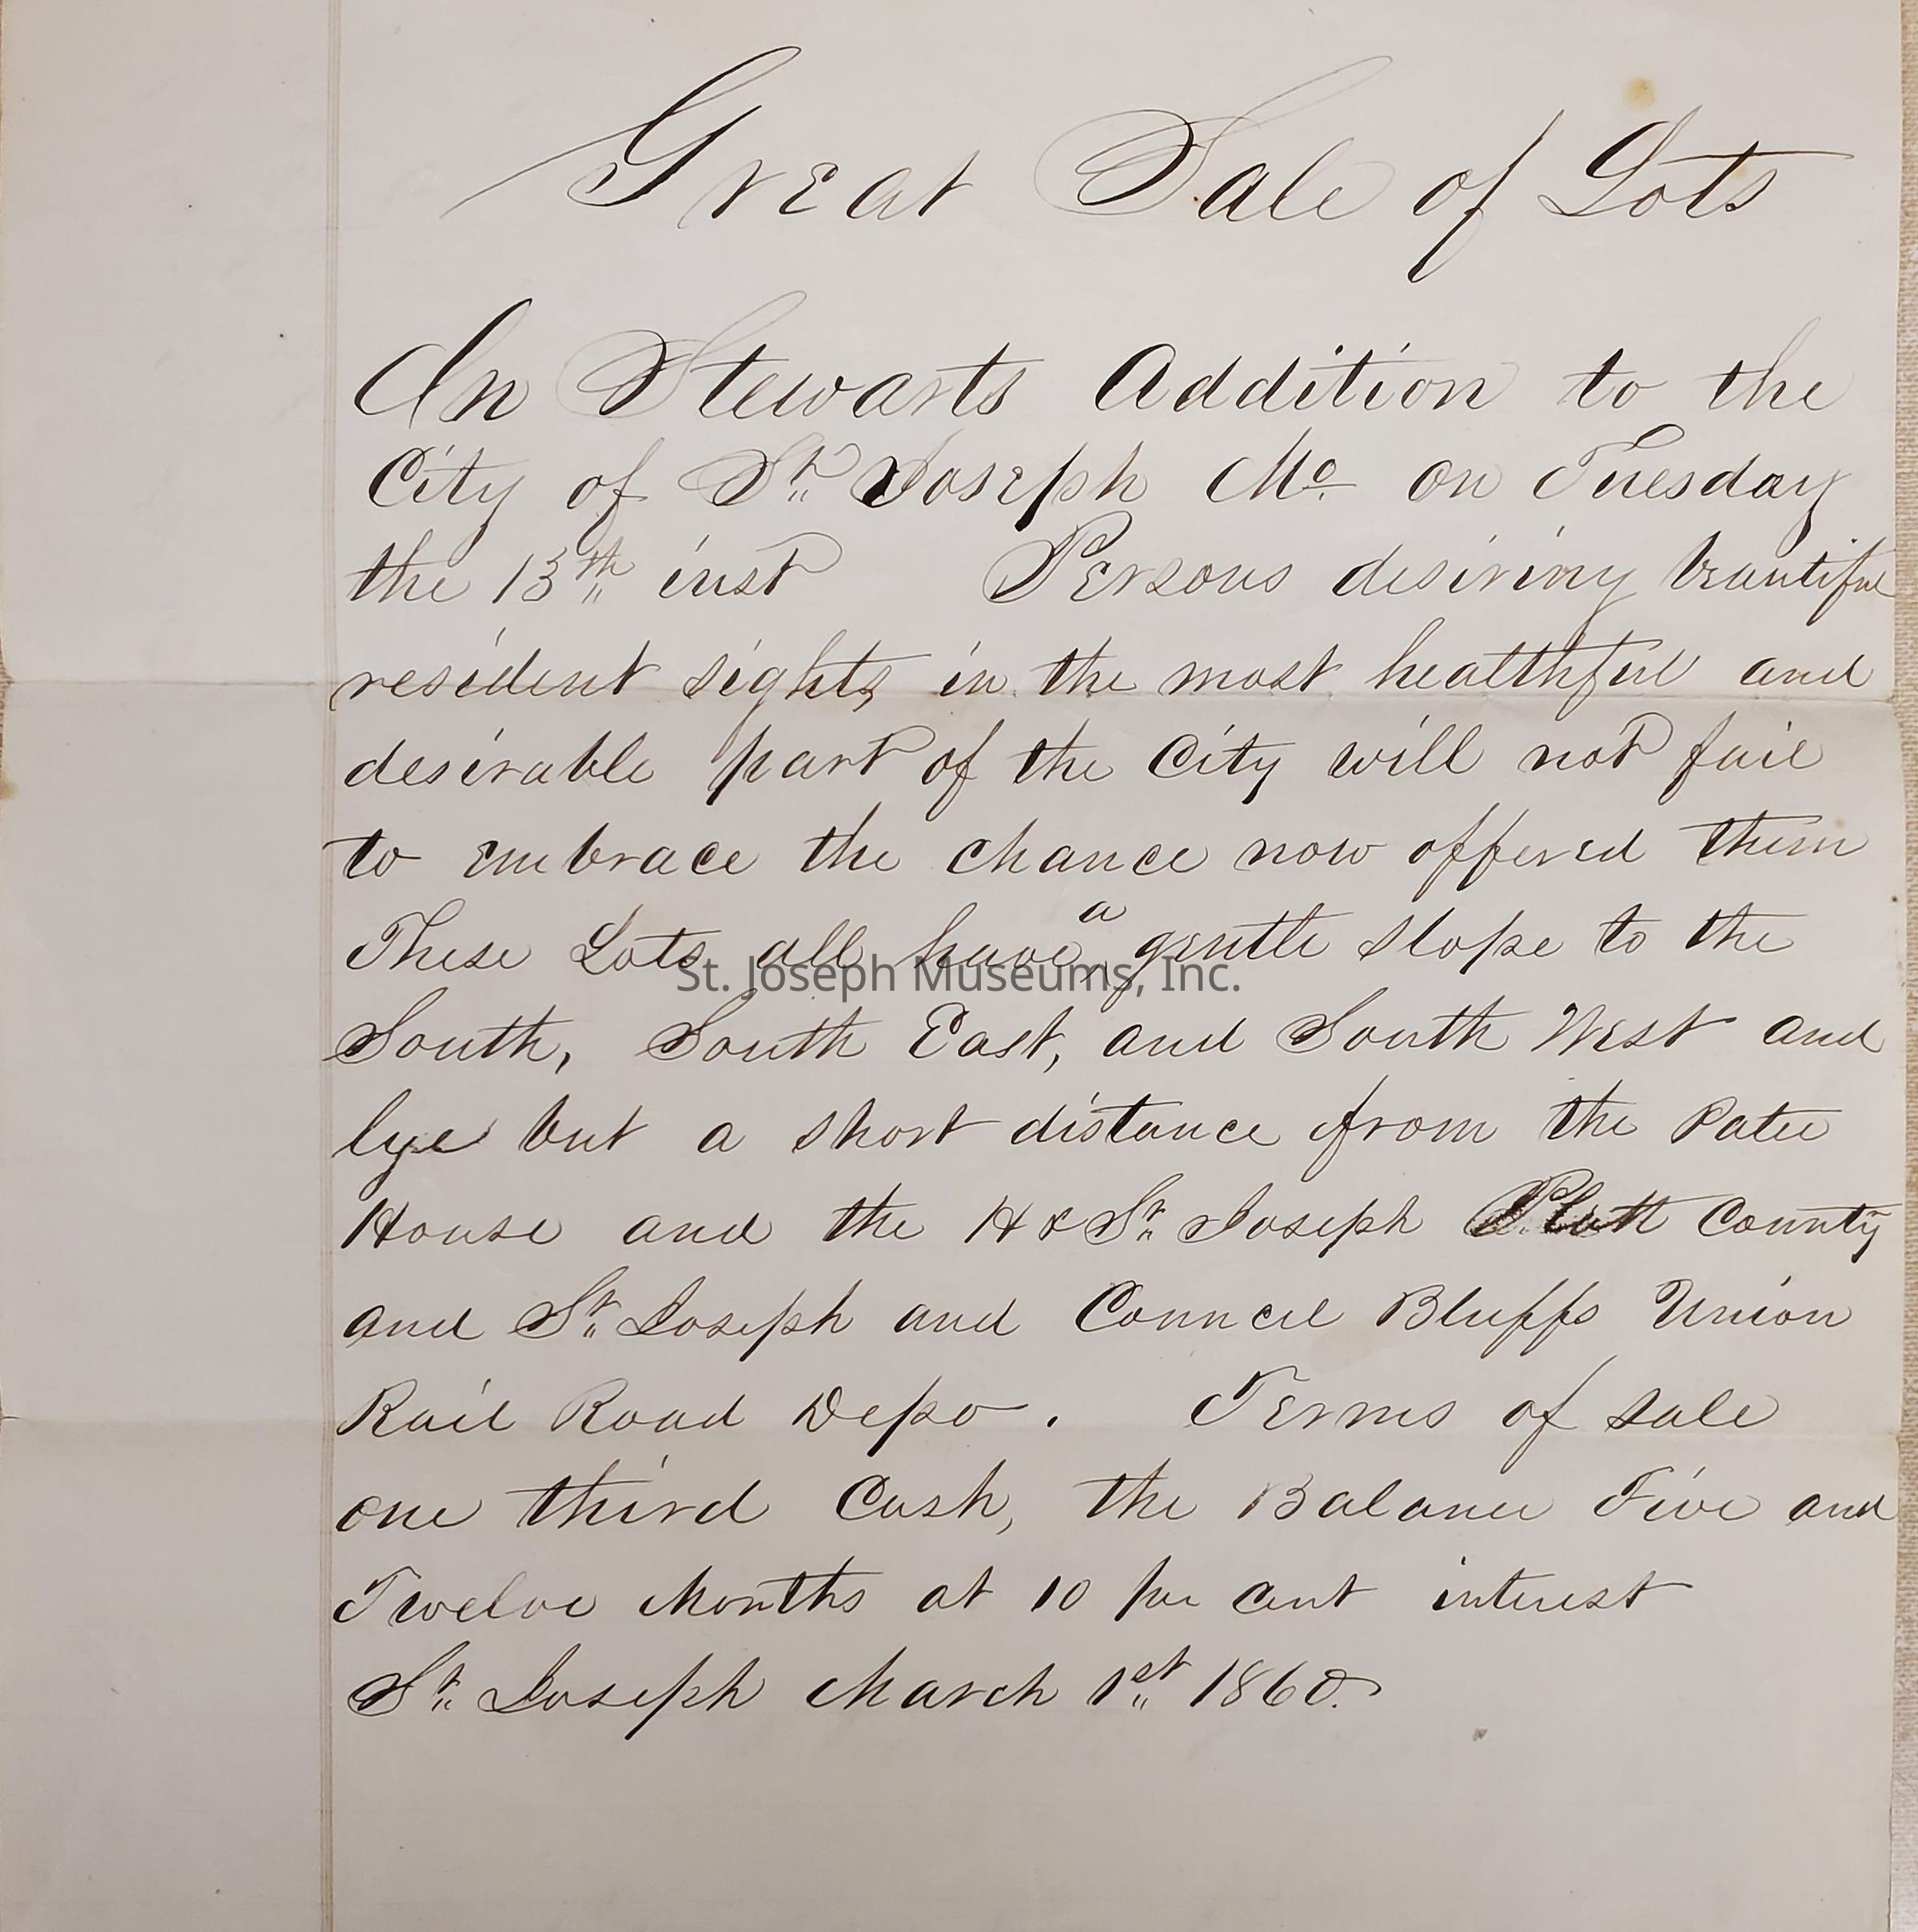 Great Sale of Lots
In Stewarts Addition to the
City of St. Joseph Mo. on Tuesday
the 13th inst Persons desiring beautiful
resident sights in the most healthful and
desirable part of the City will not fail
to embrace the chance now offered them
These Lots all have a gentle slope to the
South, South East, and South West and
lye but a short distance from the Patee
House and the H & St. Joseph Platt County
and St. Joseph and Council Bluffs Union
Rail Road Depo. Terms of sale
one third Cash, the Balance Five and
Twelve Months at 10 per cent interest
St. Joseph March 1st 1860.
St. Joseph Museums, Inc.